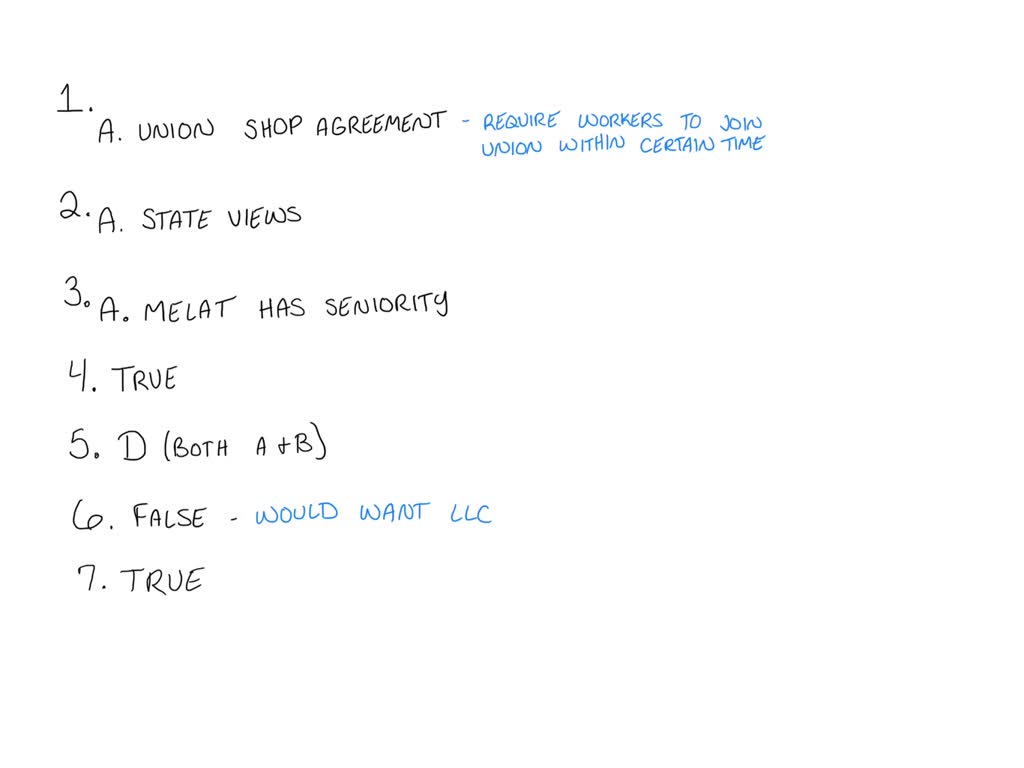 1.
A. UNION SHOP AGREEMENT - REQUIRE WORKERS TO JOIN
UNION WITHIN CERTAIN TIME
2. A. STATE VIEWS
3. A. MELAT HAS SENIORITY
4. TRUE
5. D (BOTH A + B)
6. FALSE - WOULD WANT LLC
7. TRUE